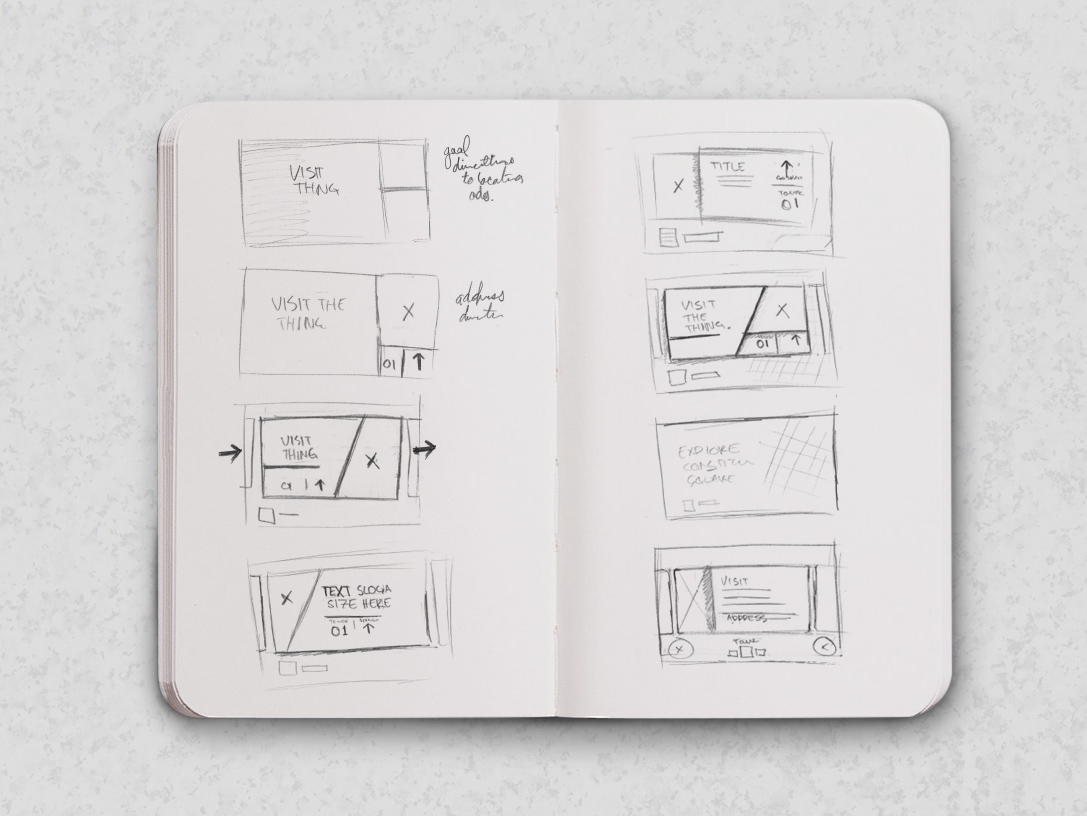 VISIT
THING
goal
directions
to location
ads.
VISIT THE
THING
X
01
address
VISIT
THING
X
01
X
TEXT SLOGA
SIZE HERE
01
TITLE
X
01
VISIT
THE
THING.
X
01
EXPLORE
SQUARE
VISIT
ADDRESS
X